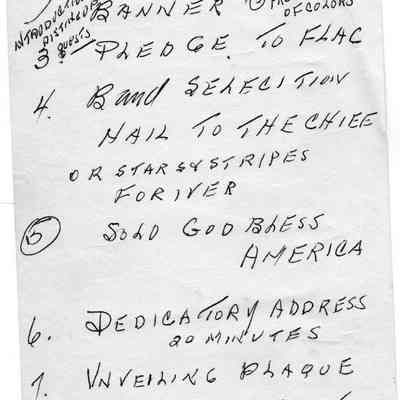 BANNER
OF COLORS
INTRODUCTION
GUESTS
3 PLEDGE TO FLAG
4. Band SELECITION
HAIL TO THE CHIEF
OR STARS & STRIPES
FORIVER
5 SOLO GOD BLESS
AMERICA
6. DEDICATORY ADDRESS
20 MINUTES
7. UNVEILING PLAQUE